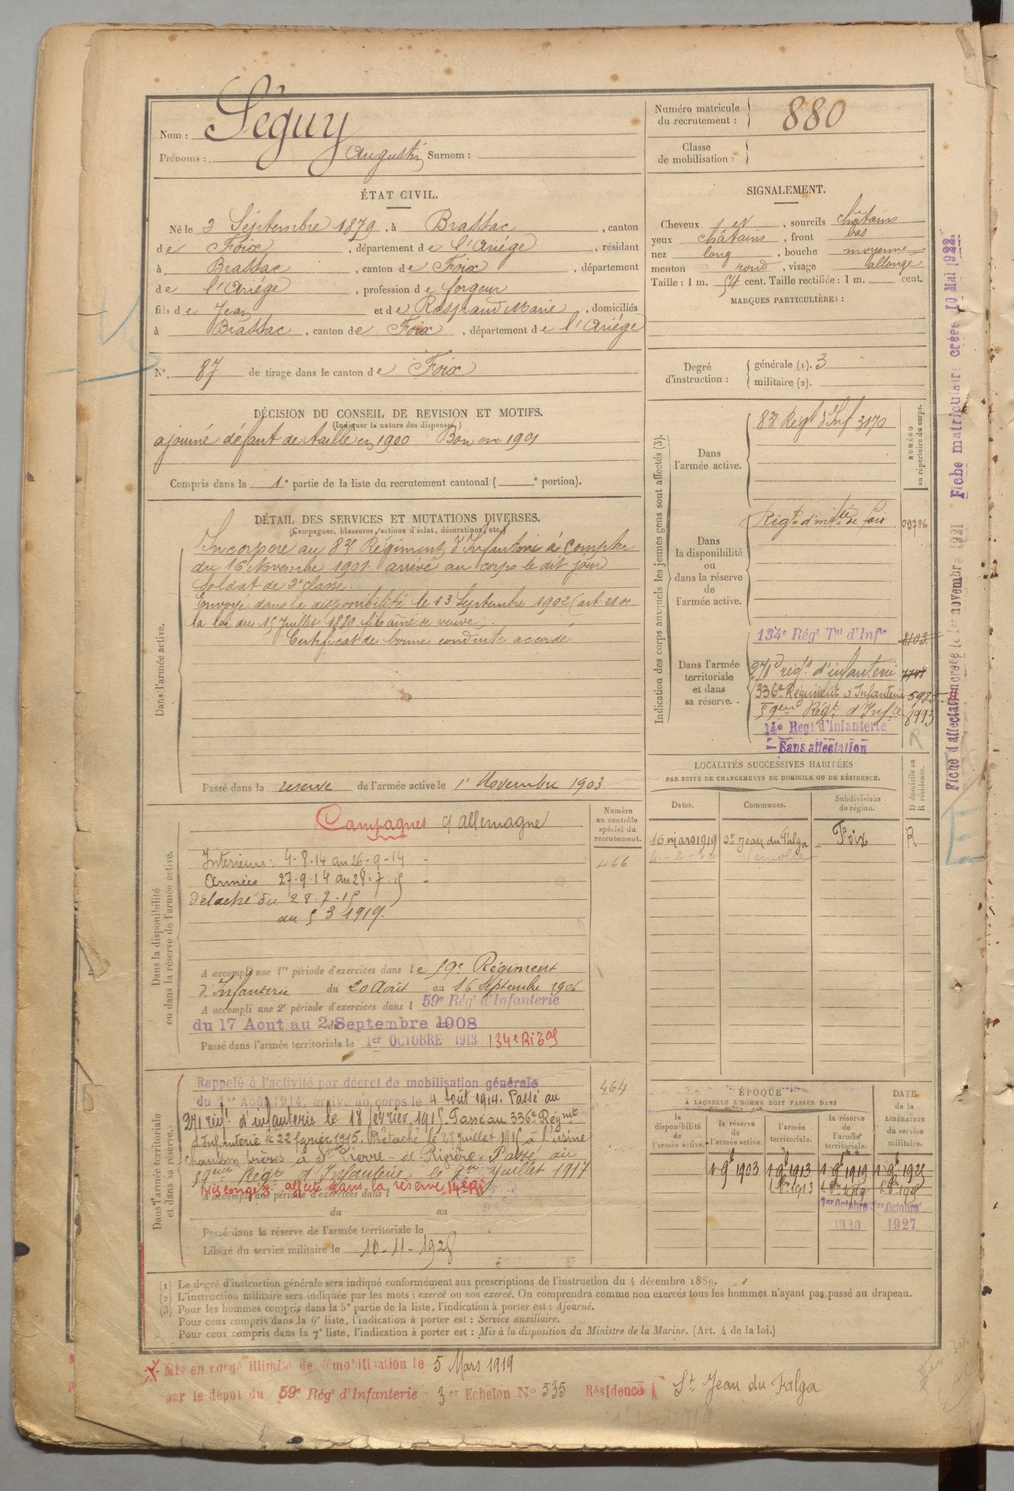 Nom : Séguy
Prénoms : Augustin Surnom :
Numéro matricule du recrutement : 880
Classe de mobilisation :
ÉTAT CIVIL.
Né le 2 Septembre 1879, à Brassac, canton
de Foix, département de l'Ariège, résidant
à Brassac, canton de Foix, département
de l'Ariège, profession de forgeur
fils de Jean et de Marie, domiciliés
à Brassac, canton de Foix, département de l'Ariège
N° 87 de tirage dans le canton de Foix
SIGNALEMENT.
Cheveux et, sourcils châtains
yeux châtains, front bas
nez long, bouche moyenne
menton rond, visage allongé
Taille : 1 m. 54 cent. Taille rectifiée : 1 m. cent.
MARQUES PARTICULIÈRES :
Degré d'instruction : générale (1). 3
militaire (2).
DÉCISION DU CONSEIL DE REVISION ET MOTIFS.
(Indiquer la nature des dispenses.)
ajourné défaut de taille en 1900 Bon en 1901
Compris dans la 1e partie de la liste du recrutement cantonal ( e portion).
DÉTAIL DES SERVICES ET MUTATIONS DIVERSES.
(Campagnes, blessures, actions d'éclat, décorations, etc.)
Dans l'armée active.
Incorporé au 83e Régiment d'Infanterie à compter
du 16 Novembre 1901 arrivé au corps le dit jour
Soldat de 2e classe.
Envoyé dans la disponibilité le 13 Septembre 1902 (art 21 de
la loi du 15 Juillet 1889 fils aîné de veuve)
Certificat de bonne conduite accordé
Passé dans la réserve de l'armée active le 1r Novembre 1903
Indication des corps auxquels les jeunes gens sont affectés (3).
NUMÉRO au répertoire du corps.
Dans l'armée active.
83e Regt d'Inf 3170
Dans la disponibilité ou dans la réserve de l'armée active.
Régt d'infrie de Foix 09786
Dans l'armée territoriale et dans sa réserve.
134e Régt Tal d'Infie 8103
271e régt d'infanterie
336e Régiment d'Infanterie
59eme Régt d'Infie 8993
14e Regt d'Infanterie
Sans affectation
Dans la disponibilité ou dans la réserve de l'armée active.
Campagnes d'allemagne
Intérieur : 4-8-14 au 26-9-14
Armées 27-9-14 au 28-7-15
Détaché du 28-7-15
au 5 3 1919.
Numéro au contrôle spécial du recrutement.
466
A accompli une 1re période d'exercices dans le 59e Régiment
d'Infanterie du 20 Aout au 16 Septembre 1906
A accompli une 2e période d'exercices dans l 59e Rég d'Infanterie
du 17 Aout au 2 Septembre 1908
Passé dans l'armée territoriale le 1er OCTOBRE 1913 134e
LOCALITÉS SUCCESSIVES HABITÉES
PAR SUITE DE CHANGEMENTS DE DOMICILE OU DE RÉSIDENCE.
Dates. Communes. Subdivisions de région. D domicile ou R résidence.
16 mars 1919 St Jean du Falga Foix R
Dans l'armée territoriale et dans sa réserve.
Rappelé à l'activité par décret de mobilisation générale
du 1er Août 1914, arrivé au corps le 4 Aout 1914. Passé au
271 régt d'infanterie le 18 fevrier 1915 Passé au 336e Régimt
d'Infanterie le 22 1915. Détaché le 28 Juillet 1915 à l'usine
frères à St Pierre de Rivière. Passé au
59eme Régt d'Infanterie le 1er Juillet 1917
affecté dans la réserve 14e RI
A accompli une période d'exercices dans l
du au
Passé dans la réserve de l'armée territoriale le
Libéré du service militaire le 10-11-1928
464
ÉPOQUE
À LAQUELLE L'HOMME DOIT PASSER DANS
la disponibilité de l'armée active.
la réserve de l'armée active.
l'armée territoriale.
la réserve de l'armée territoriale.
DATE de la LIBÉRATION du service militaire.
1 9bre 1903 1 9bre 1913 1 9bre 1919 1 9bre 1925
1er Octobre 1er Octobre
1920 1927
(1) Le degré d'instruction générale sera indiqué conformément aux prescriptions de l'instruction du 4 décembre 1889.
(2) L'instruction militaire sera indiquée par les mots : exercé ou non exercé. On comprendra comme non exercés tous les hommes n'ayant pas passé au drapeau.
(3) Pour les hommes compris dans la 5e partie de la liste, l'indication à porter est : Ajourné.
Pour ceux compris dans la 6e liste, l'indication à porter est : Service auxiliaire.
Pour ceux compris dans la 7e liste, l'indication à porter est : Mis à la disposition du Ministre de la Marine. (Art. 4 de la loi.)
Mis en congé illimité de démobilisation le 5 Mars 1919
par le dépot du 59e Rég d'Infanterie 3er Echelon No 535 Résidence St Jean du Falga
Fiche d'affectation créée le 1er novembre 1921 Fiche matriculaire créée 10 Mai 1922.